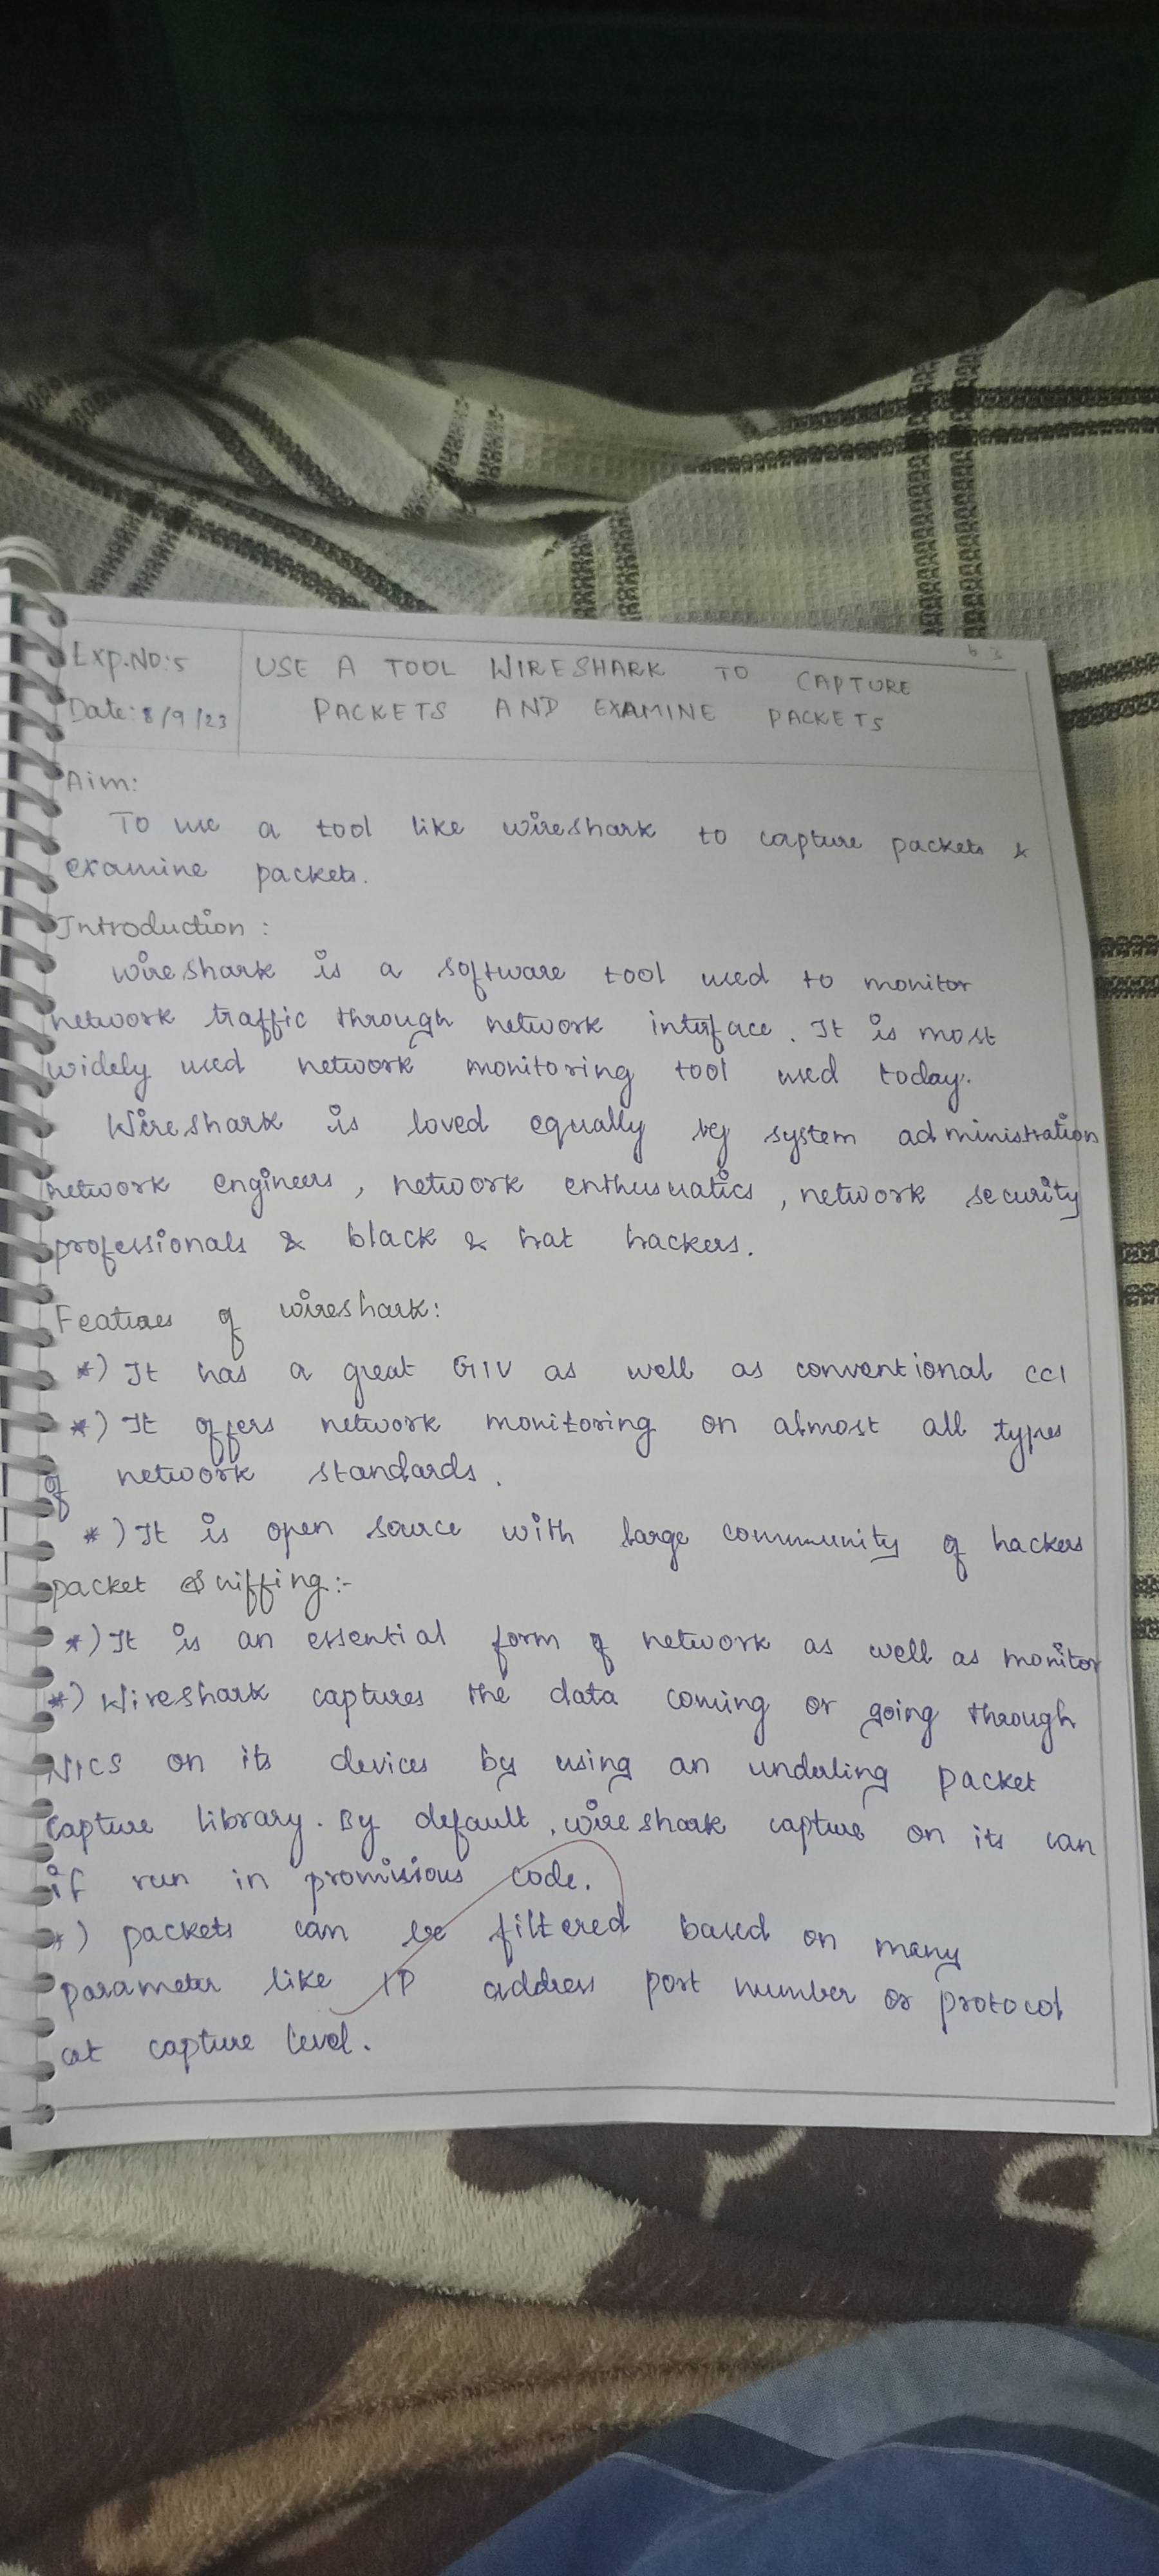 Exp.No:5
Date: 8/9/23
USE A TOOL WIRESHARK TO CAPTURE
PACKETS AND EXAMINE PACKETS
Aim:
To use a tool like wireshark to capture packets &
examine packets.
Introduction :
Wireshark is a software tool used to monitor
network traffic through network interface. It is most
widely used network monitoring tool used today.
Wireshark is loved equally by system administration
network engineers, network enthusuatics, network security
professionals & black & hat hackers.
Features of wireshark:
*) It has a great GIV as well as conventional CCI
*) It offers network monitoring on almost all types
of network standards.
*) It is open source with large community of hackers
packet sniffing:-
*) It is an essential form of network as well as monitor
*) Wireshark captures the data coming or going through
NICS on its devices by using an underling packet
capture library. By default, wireshark capture on its can
if run in promisious code.
*) packets can be filtered based on many
parameter like IP address port number or protocol
at capture level.